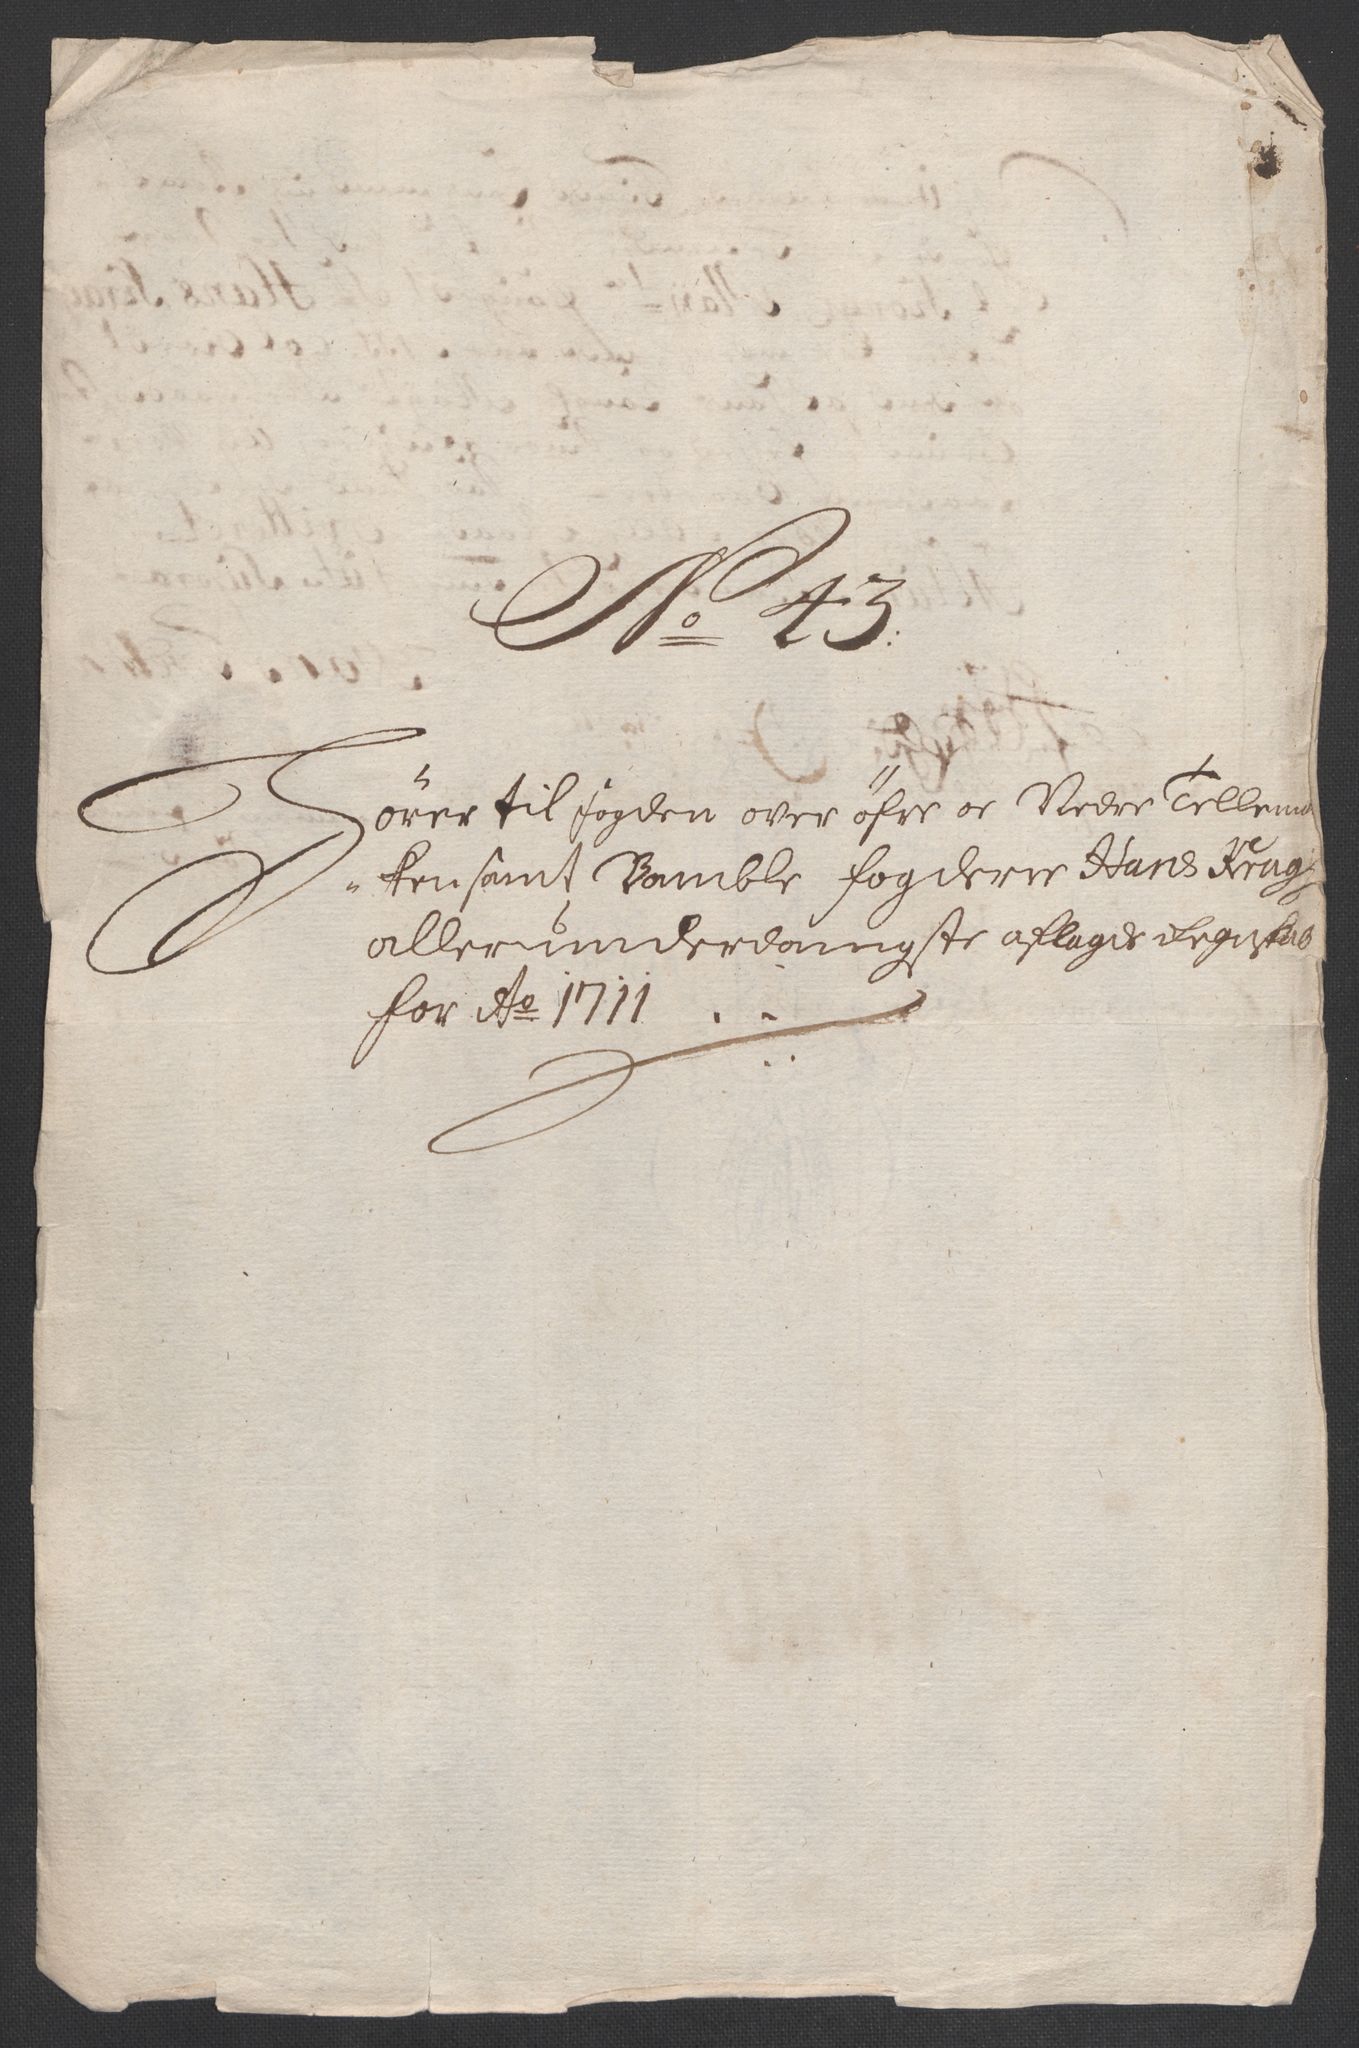 No 43:
Hörer til fogden over öfre oc Nedre Tellema
ken samt Bamble fogderie Hans Krag
allerunderdanigste aflagde Regnskab
for Ao 1711